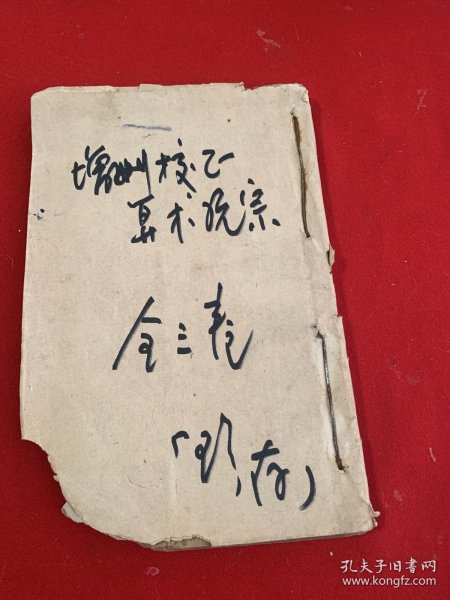 增删校正
算术统宗
全三卷
存
孔夫子旧书网
www.kongfz.com